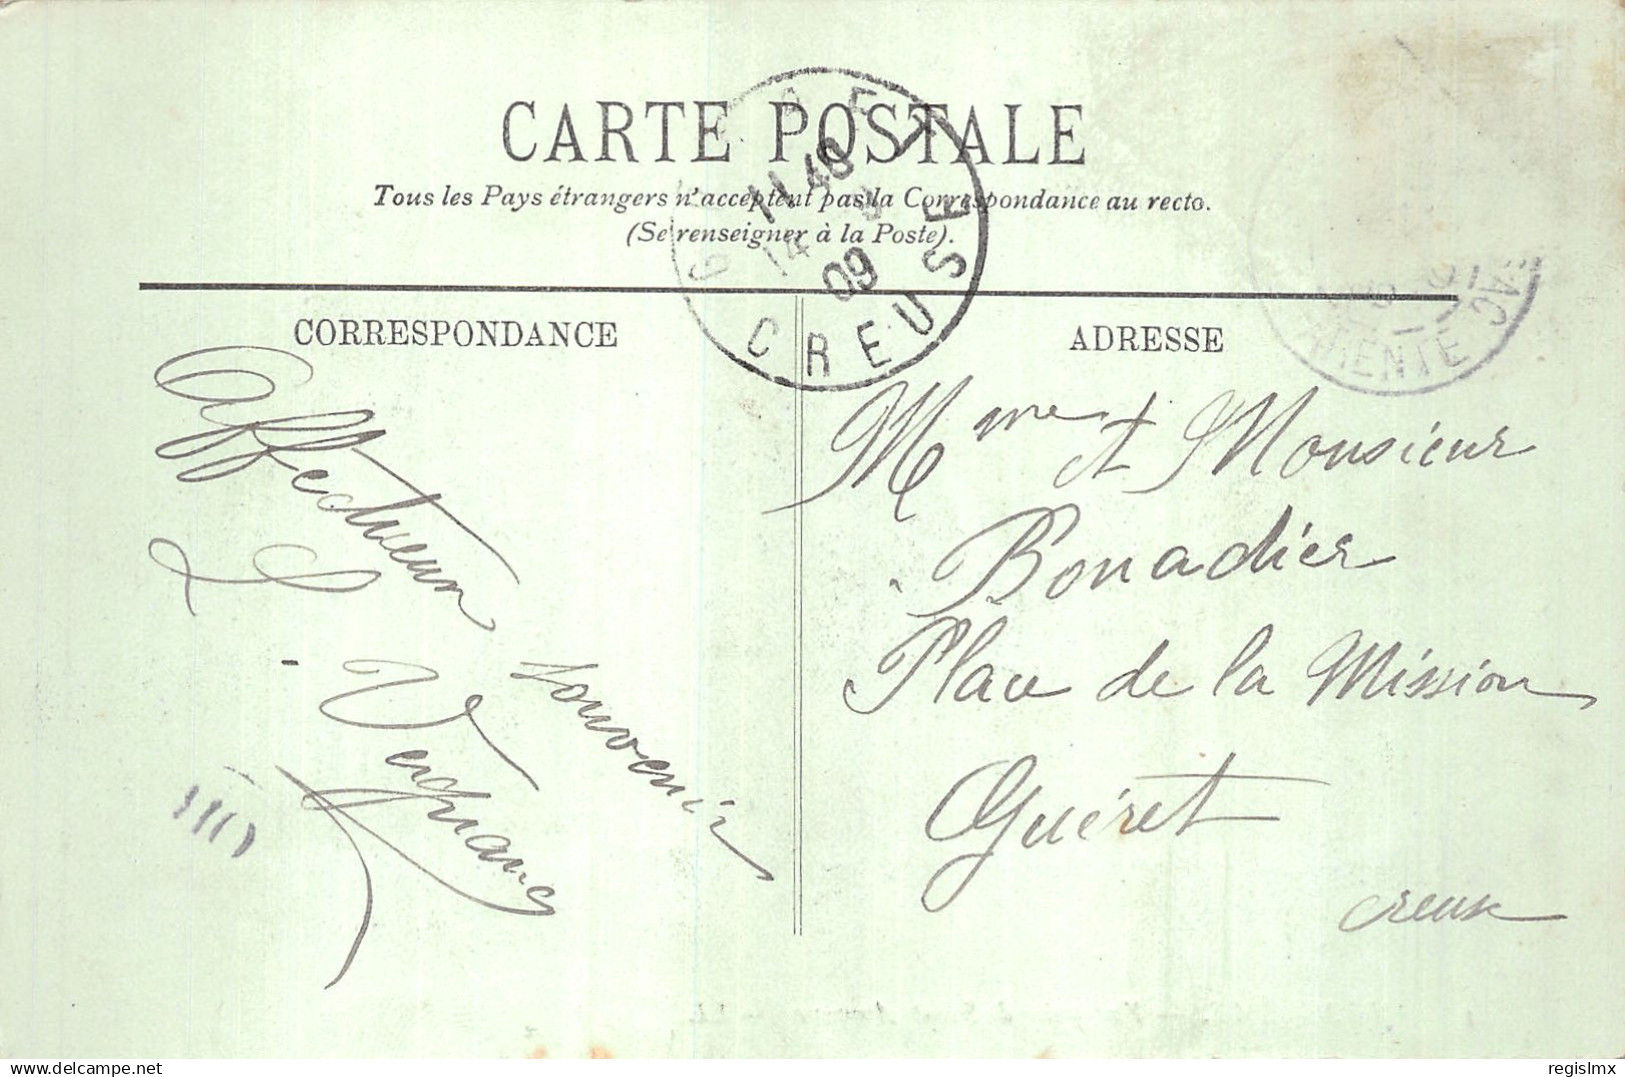 CARTE POSTALE
Tous les Pays étrangers n'acceptent pas la Correspondance au recto.
(Se renseigner à la Poste).
11 40
14
09
CREUSE
CORRESPONDANCE
ADRESSE
Affectueux
souvenir
Mme et Monsieur
Bonadier
Place de la Mission
Guéret
Creuse
regislmx